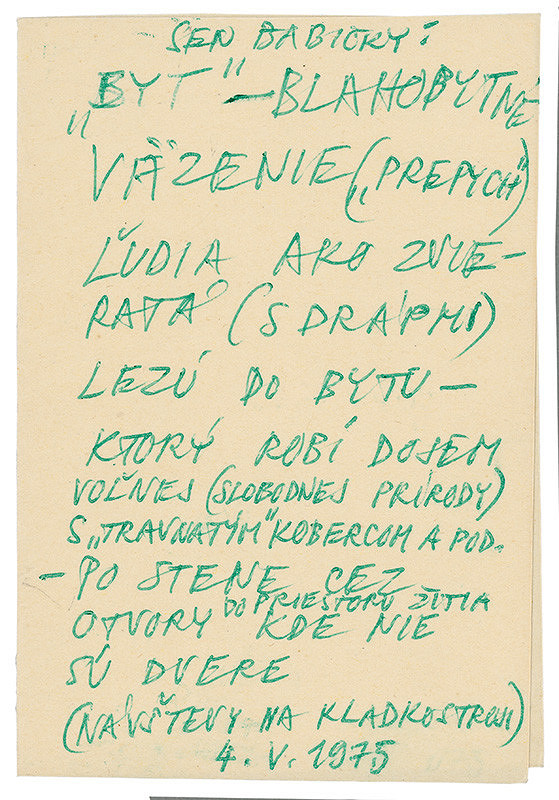 SEN BABIČKY:
„BYT" – BLAHOBYTNÉ
VÄZENIE („PREPYCH")
ĽUDIA AKO ZVIE-
RATÁ (S DRÁPMI)
LEZÚ DO BYTU –
KTORÝ ROBÍ DOJEM
VOĽNEJ (SLOBODNEJ PRÍRODY)
S „TRAVNATÝM" KOBERCOM A POD.
– PO STENE CEZ
OTVORY DO PRIESTORU ŽITIA KDE NIE
SÚ DVERE
(NAVŠTEVY NA KLADKOSTROJI)
4. V. 1975